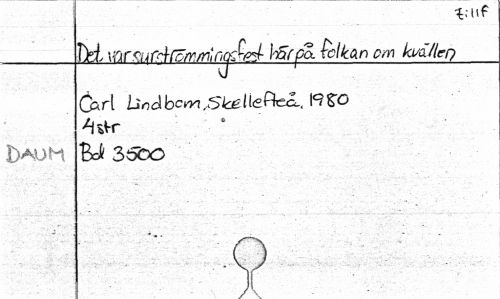 z:11f
Det var surströmmingsfest här på folkan om kvällen
Carl Lindbom, Skellefteå, 1980
4 str
DAUM Bd 3500